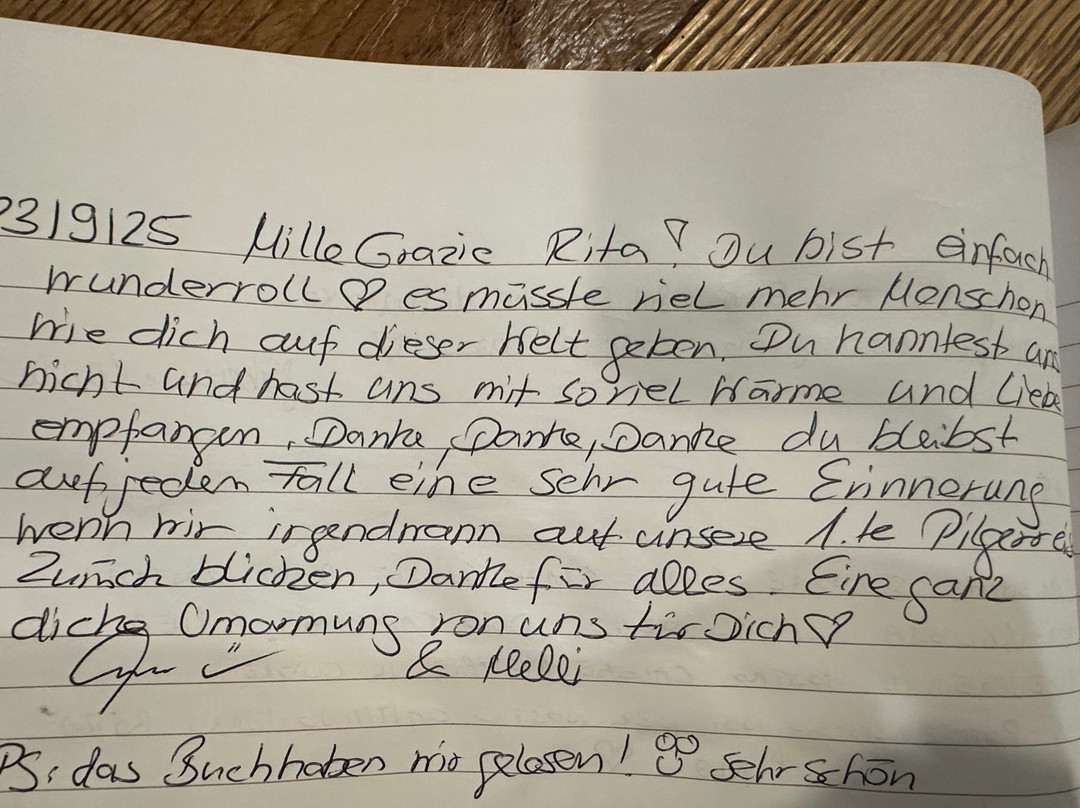 23/9/25 Mille Grazie Rita! Du bist einfach
wundervoll ♡ es müsste viel mehr Menschen
wie dich auf dieser Welt geben. Du kanntest uns
nicht und hast uns mit soviel Wärme und Liebe
empfangen, Danke, Danke, Danke du bleibst
auf jeden Fall eine sehr gute Erinnerung
wenn wir irgendwann auf unsere 1.te
Zurück blicken, Danke für alles. Eine ganz
dicke Umarmung von uns für Dich ♡
& Melli
PS: das Buch haben wir gelesen! sehr schön